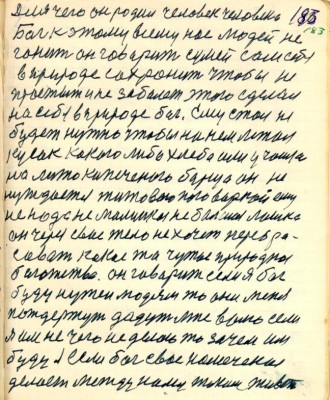 Для чего он родил человек человека 183
Бог к этому всему нас людей не 183
гонит он говорит сумей сам себя
в природе сохронить чтобы не
простыл и не заболел этого сделал
на себе в природе бог. Ему стол не
будет нужно чтобы на нем лежал
кусак какого либо хлеба или
на лито кипеченого борща он не
нуждается житовою
не надо не малинка не балшая ложка
он через свае тело не хочет перебра-
савать какое та природное
богатство. он говарит если я бог
буду нужен людям то они меня
потдержут дадут мне волю если
я им не чего не делою то зачем им
буду я Если бог свое намеченая
делает между нами таким